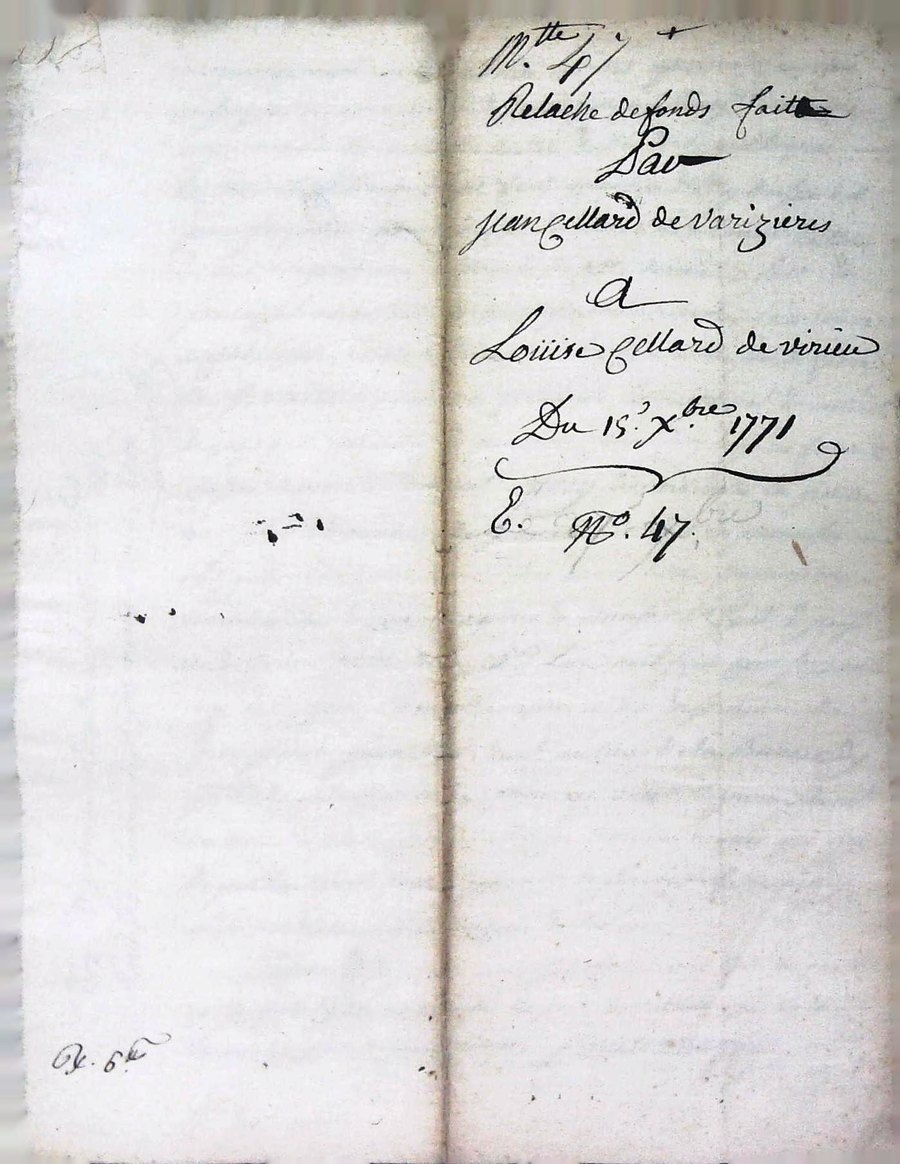 M.tte 47 +
Relache de fonds faitte
Par
jean Cellard de varizieres
a
Loüise Cellard de virieu
Du 15.e Xbre. 1771
E. No. 47.